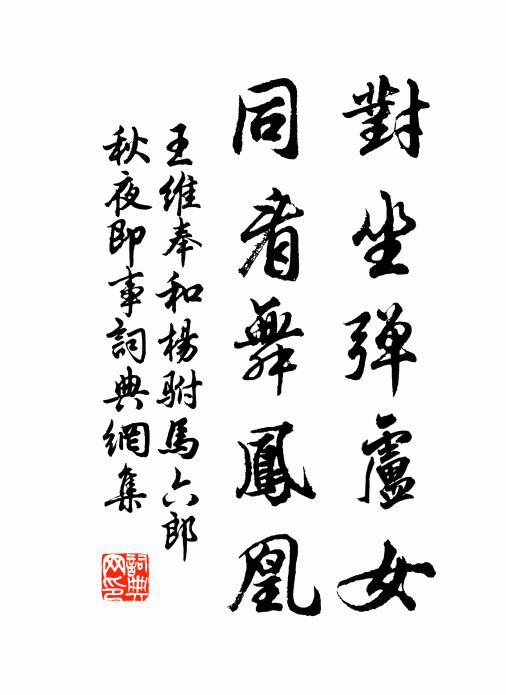 對坐弹盧女
同看舞鳳凰
王維奉和楊駙馬六郎
秋夜即事詞典網集
詞典
网印